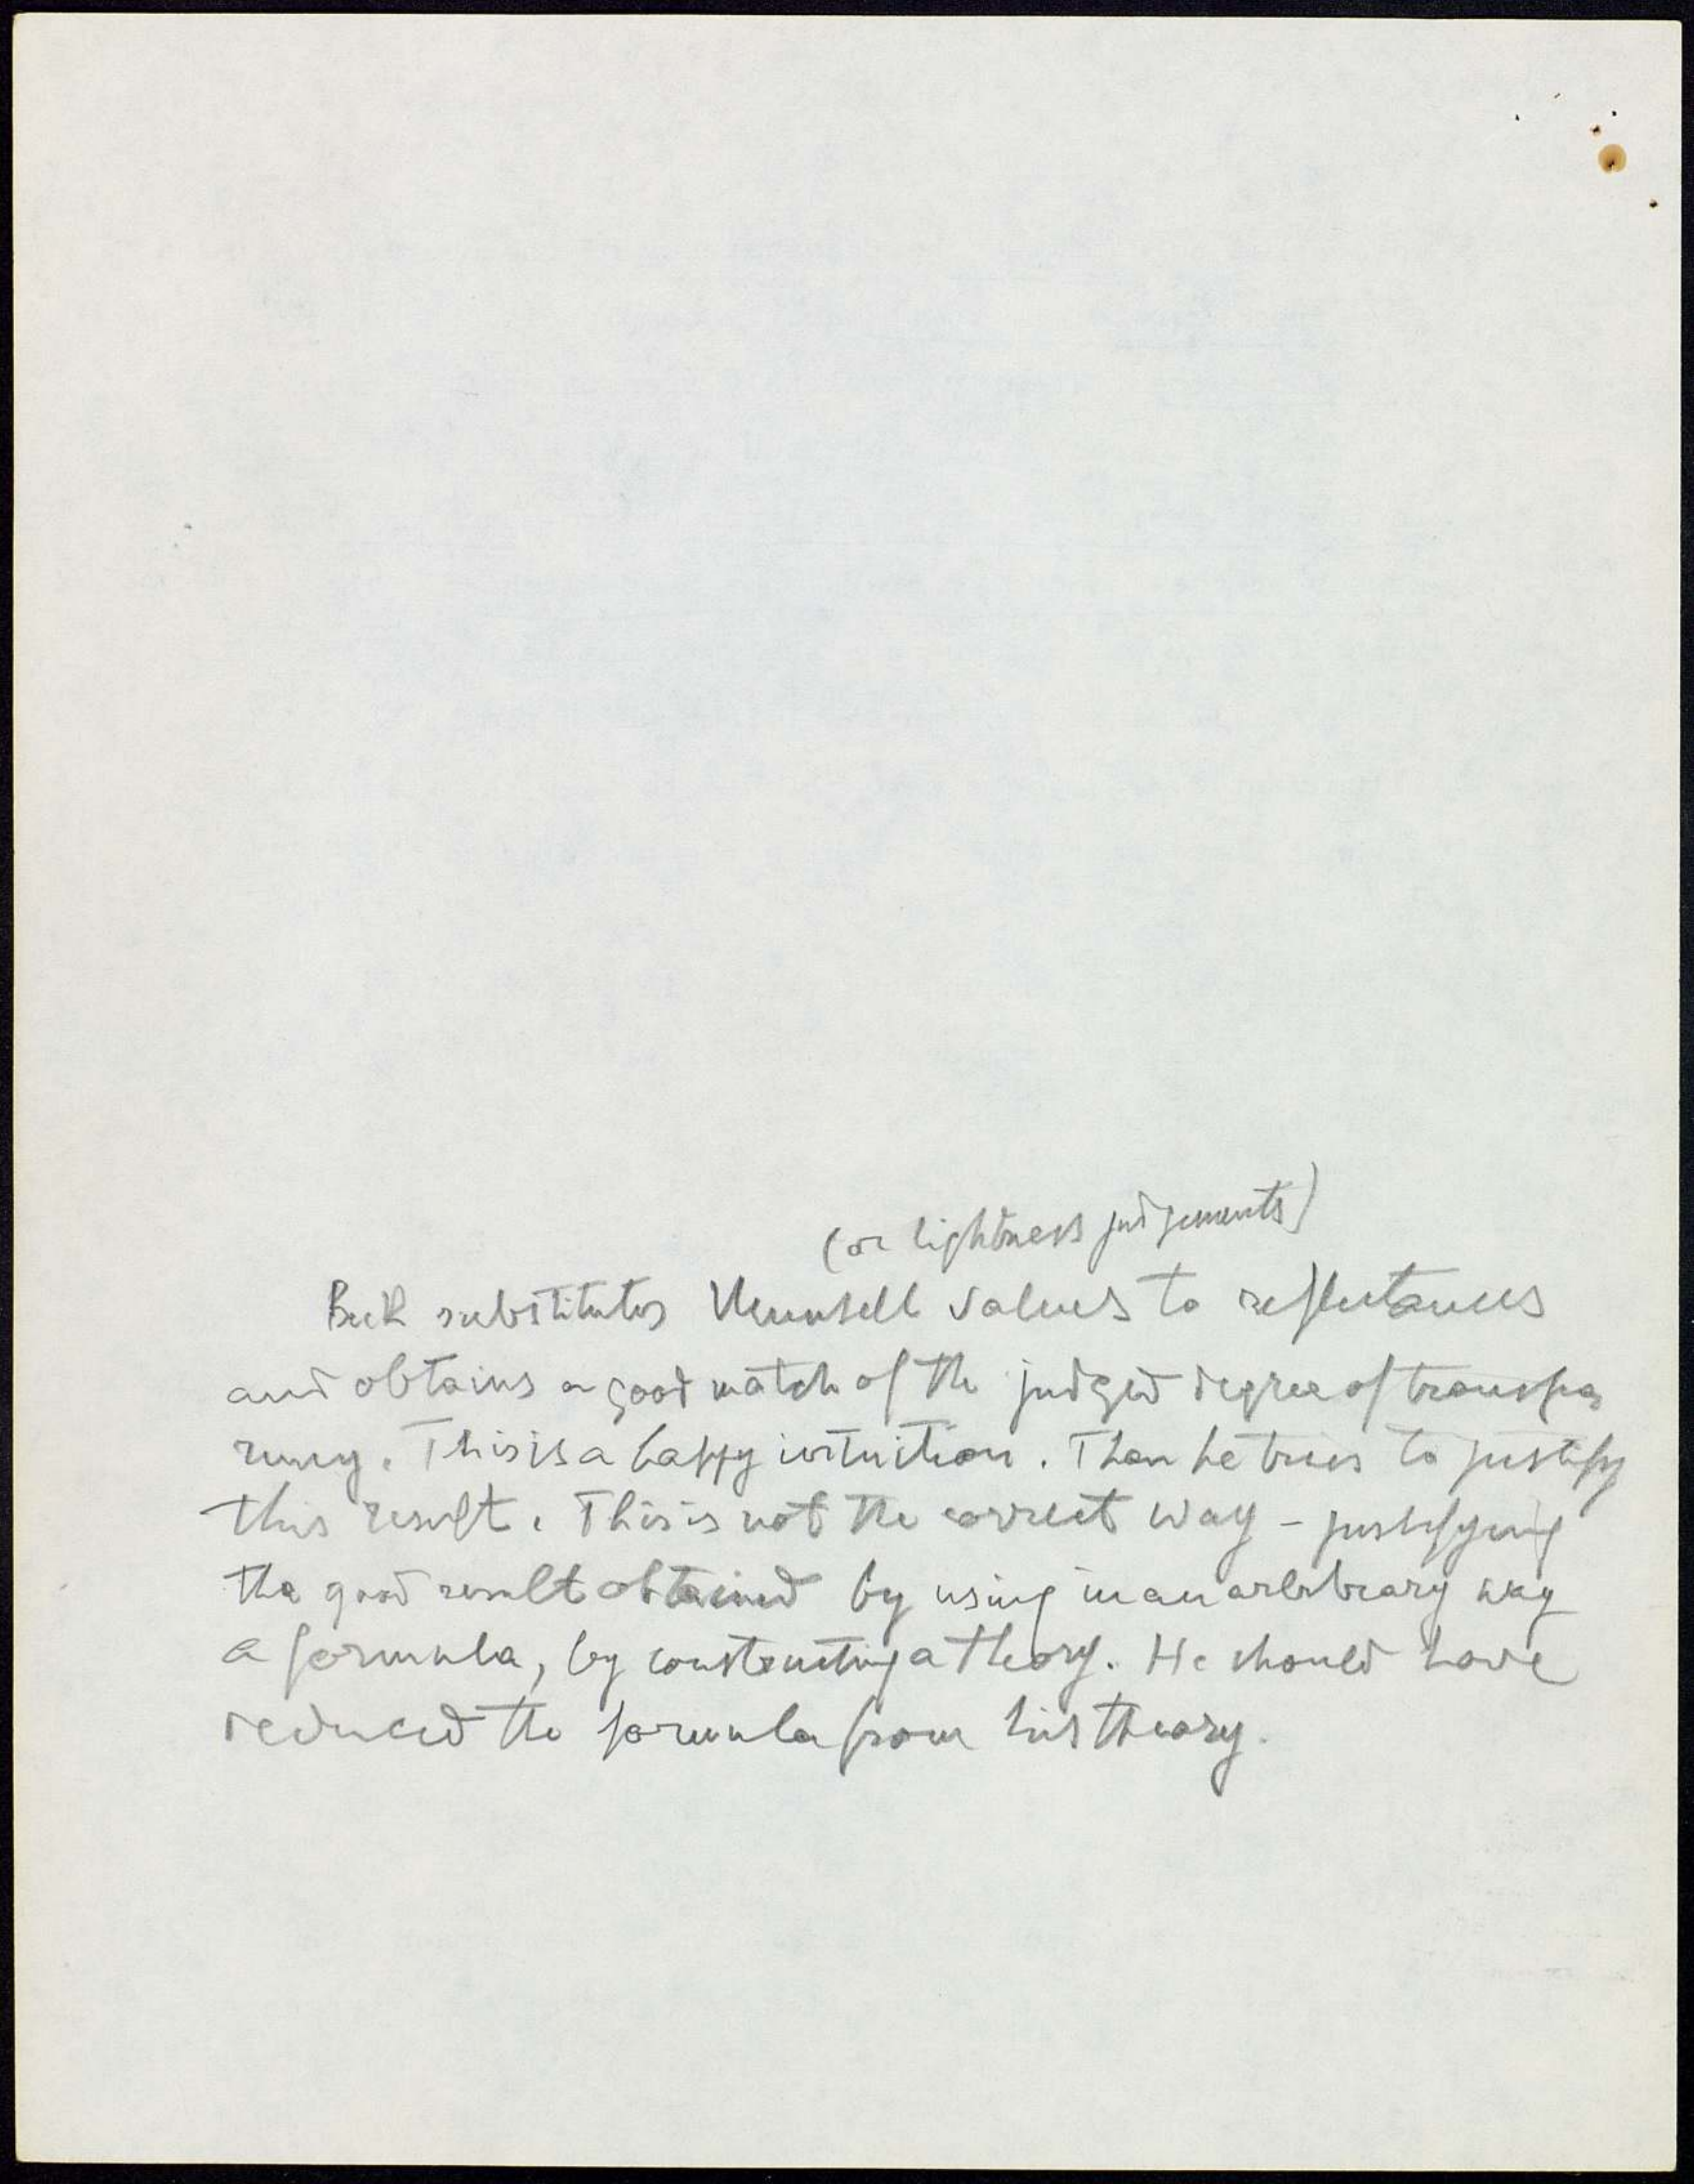 (or lightness judgements)
Beck substitutes Munsell values to reflectances
and obtains a good match of the judged degree of transpa
rency. This is a happy intuition. Then he tries to justify
this result. This is not the correct way - justifying
the good result obtained by using in an arbitrary way
a formula, by constructing a theory. He should have
deduced the formula from his theory.